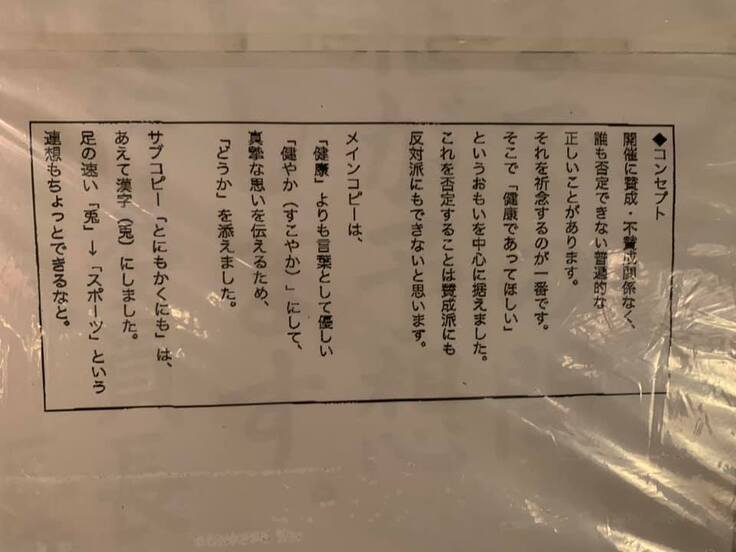 ◆コンセプト
開催に賛成・不賛成関係なく、
誰も否定できない普遍的な
正しいことがあります。
それを祈念するのが一番です。
そこで「健康であってほしい」
というおもいを中心に据えました。
これを否定することは賛成派にも
反対派にもできないと思います。
メインコピーは、
「健康」よりも言葉として優しい
「健やか（すこやか）」にして、
真摯な思いを伝えるため、
「どうか」を添えました。
サブコピー「とにもかくにも」は、
あえて漢字（兎）にしました。
足の速い「兎」→「スポーツ」という
連想もちょっとできるなと。